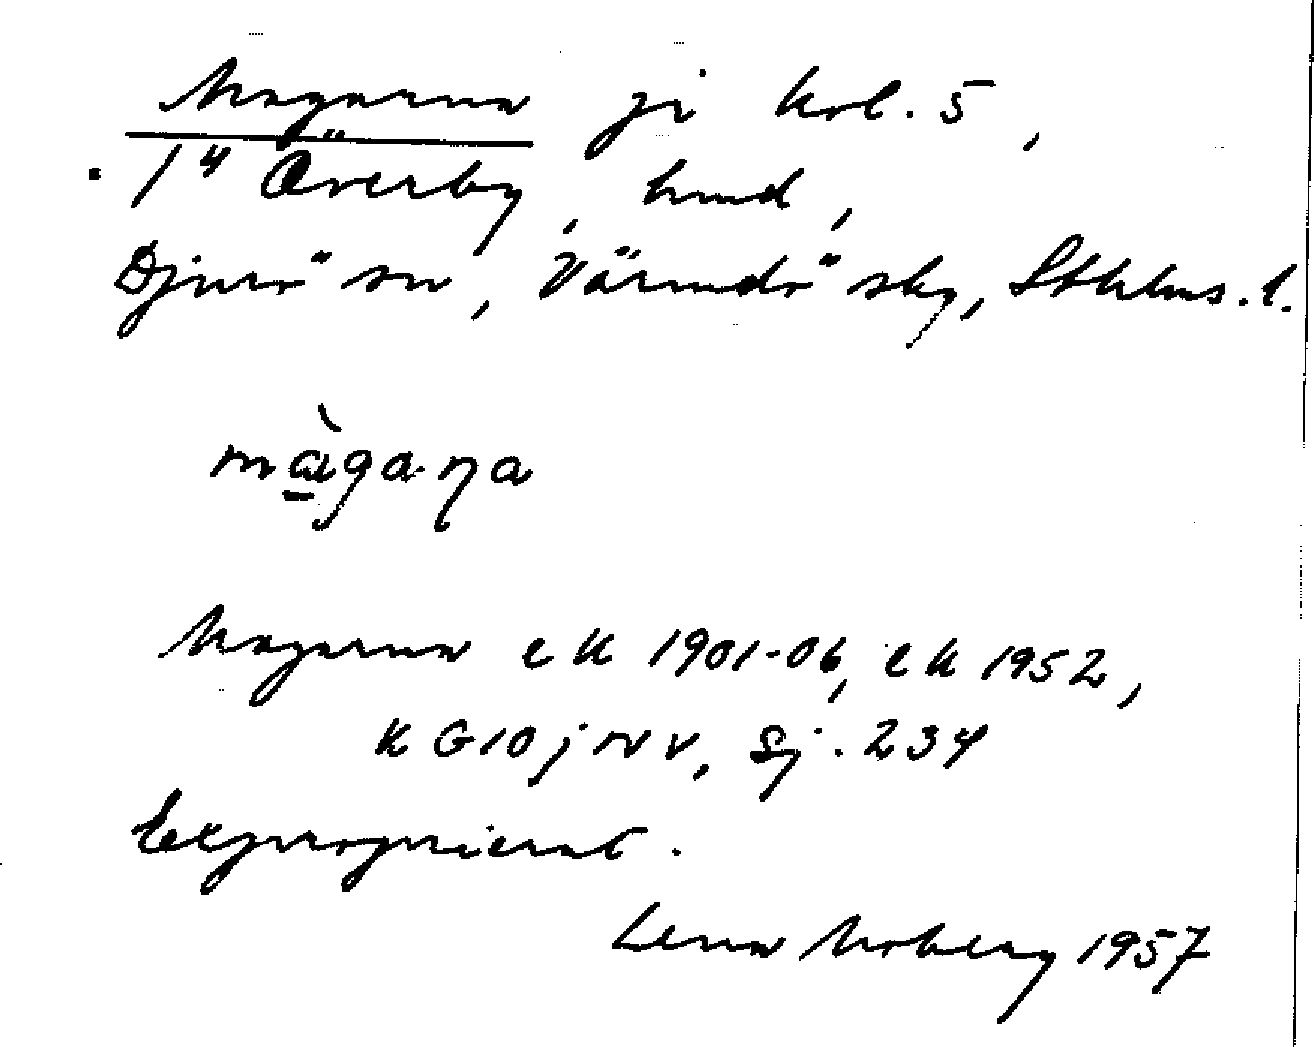 Magarna ji kol. 5,
1⁴ Överby, hmd,
Djurö sn, Värmdö skg, Sthlms. l.
màgaṇa
Magarna ek 1901-06, ek 1952,
K G10jNV, Sj. 234
Exproprierat.
Lena Moberg 1957